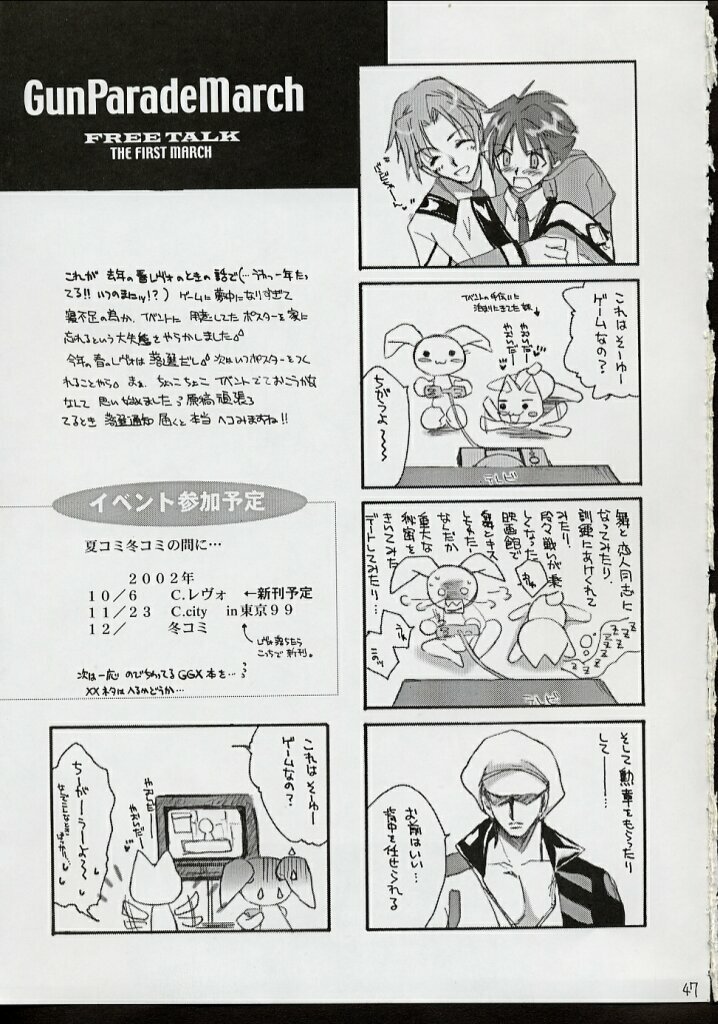 GunParadeMarch
FREE TALK
THE FIRST MARCH
これが 去年の春レヴォのときの話で(…うわっ一年たっ
てる!! いつのまにッ!?) ゲームに夢中になりすぎて
寝不足の為か、イベントに 用意してた ポスターを家に
忘れるという大失態をやらかしました。
今年の春のレヴォは 落選だし。次はいつポスターをつく
れることやら。まぁ、ちょこちょこ イベントでておこうかな
なんて 思い始めました。原稿頑張っ
てるとき 落選通知 届くと本当 ヘコみますね!!
イベント参加予定
夏コミ冬コミの間に…
2002年
10/6 C.レヴォ ←新刊予定
11/23 C.city in東京99
12/ 冬コミ
レヴォ落ちたら
こっちで新刊。
次は一応 のびちゃってる GGX 本を…
XX ネタは入るかどうか…
これはそーゆー
ゲームなの?
イベントの手伝いに
泊りにきてた妹
ちがうよ〜〜
テレビ
舞と 恋人同志に
なってみたり、
訓練にあけくれて
みたり、
段々戦いが楽
しくなったり
映画館で
舞とキス
しちゃったり
なんだか
重大な
秘密を
きいてみたり
デートしてみたり…
テレビ
そして 勲章をもらったり
して———
お前はいい…
背中を任せられる
これはそーゆー
ゲームなの?
ちーがーうーよ〜〜
47